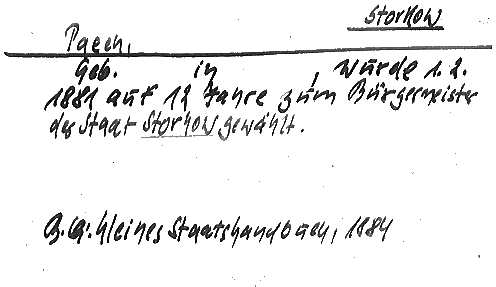 Storkow
Paech,
Geb. in , wurde 1. 2.
1881 auf 12 Jahre zum Bürgermeister
der Stadt Storkow gewählt.
B.Q.: Kleines Staatshandbuch, 1884